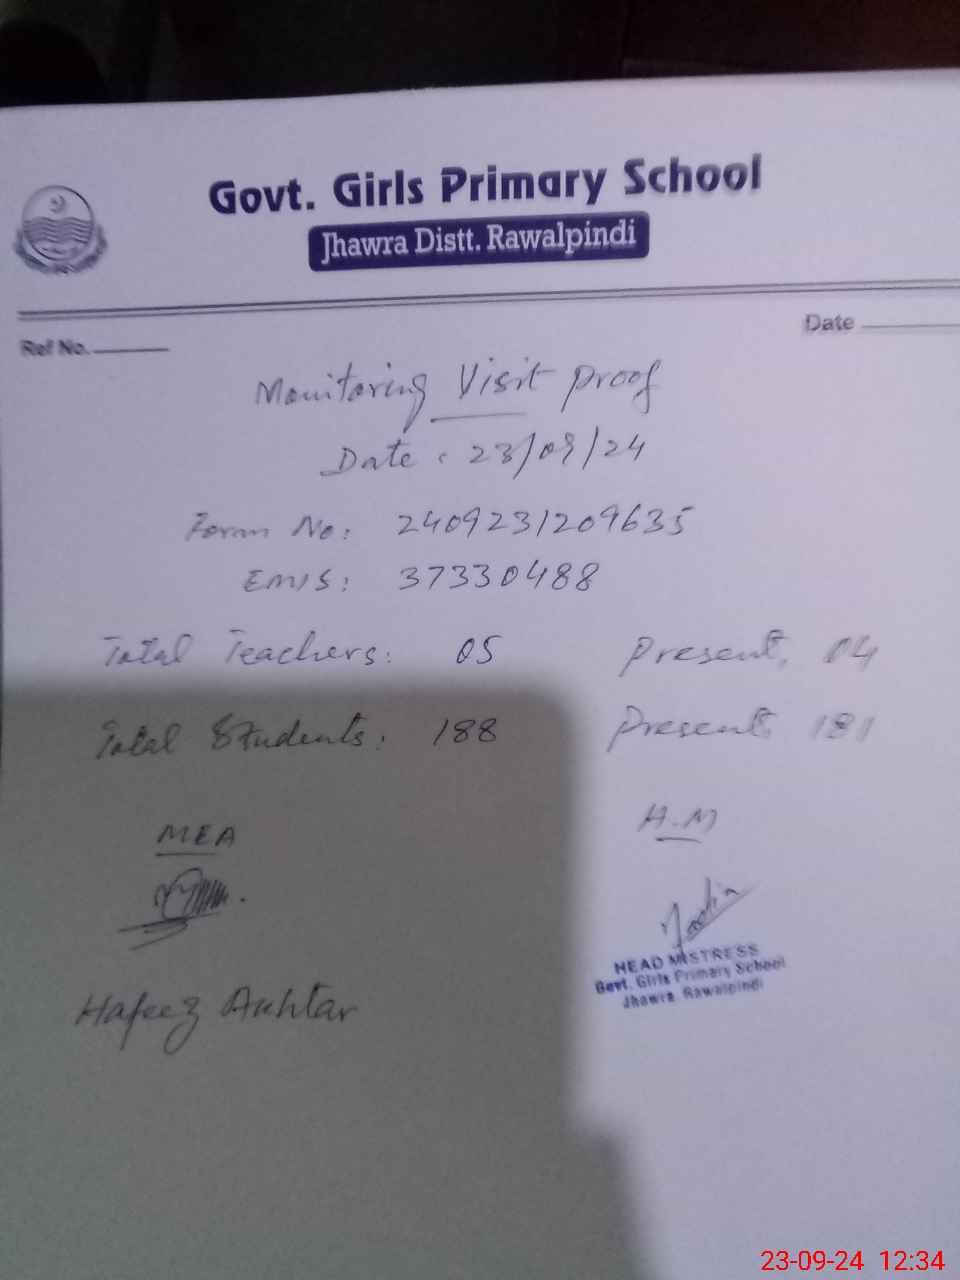 Govt. Girls Primary School
Jhawra Distt. Rawalpindi
Ref No.
Date
Monitoring Visit Proof
Date: 23/09/24
Form No: 2409231209635
EMIS: 37330488
Total Teachers: 05 Present: 04
Total Students: 188 Present: 181
MEA
H.M
HEAD MISTRESS
Govt. Girls Primary School
Jhawra Rawalpindi
Hafeez Akhtar
23-09-24 12:34